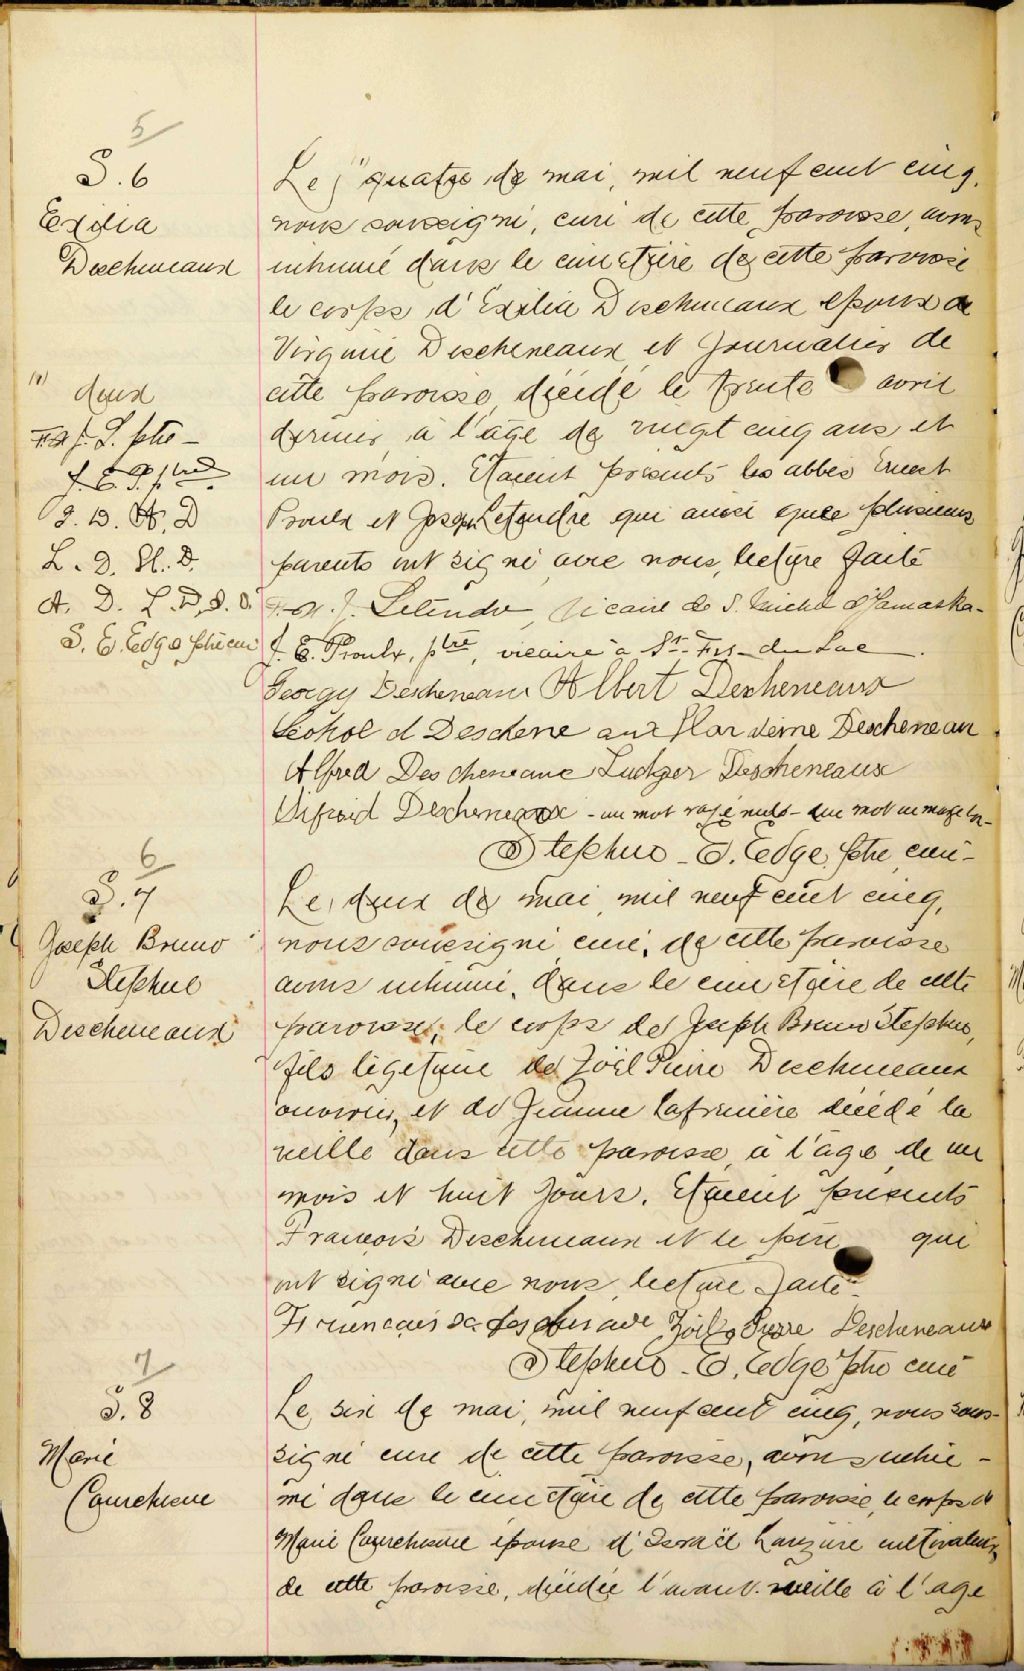 5
S. 6
Exilia
Descheneaux
(1) deux
F X J. L. ptre -
J. E. P. ptre.
G. D. A. D
L. D. H. D.
A. D. L. D. S. D.
S. E. Edge ptre curé
Le (1) quatre de mai, mil neuf cent cinq,
nous soussigné, curé de cette paroisse, avons
inhumé dans le cimetière de cette paroisse
le corps d'Exilia Descheneaux epoux de
Virginie Descheneaux et journalier de
cette paroisse, décédé le trente avril
dernier à l'âge de vingt cinq ans et
un mois. Etaient présents les abbés Ernest
Proulx et Joseph Letendre qui ainsi que plusieurs
parents ont signé avec nous, lecture faite
F. X. J. Letendre, vicaire de S. Michel d'Yamaska-
J. E. Proulx, ptre, vicaire à St-Frs-du Lac.
Georgy Descheneaux Albert Descheneaux
Descheneaux Descheneau
Alfred Descheneaux Ludger Descheneaux
Descheneaux - un mot rayé nul - un mot en marge bon-
Stephus - E. Edge, ptre curé-
6
S. 7
Joseph Bruno
Stephus
Descheneaux
Le deux de mai mil neuf cent cinq,
nous soussigné curé, de cette paroisse
avons inhumé, dans le cimetière de cette
paroisse, le corps de Joseph Bruno Stephus,
fils légetime de Zoël Pierre Descheneaux
ouvrier, et de Jeanne Lafrenière décédé la
veille dans cette paroisse à l'âge de un
mois et huit jours. Etaient présents
François Descheneaux et le père qui
ont signé avec nous, lecture faite.
Zoël Pierre Descheneaux
Stephus - E. Edge ptre curé
7
S. 8
Marie
Courchesne
Le six de mai, mil neuf cent cinq, nous sous-
signé curé de cette paroisse, avons inhu-
mé dans le cimetière de cette paroisse, le corps de
Marie Courchesne épouse d'Israël cultivateur,
de cette paroisse, décédée l'avant-veille à l'age